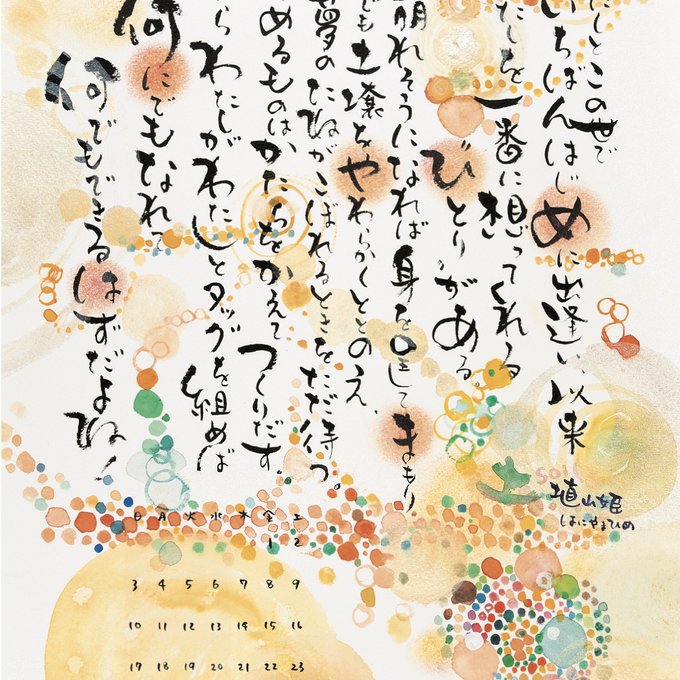 たしとこの世で
いちばんはじめに出逢い、以来
たしを一番に想ってくれる
“ひとり”がある。
崩れそうになれば身を呈してまもり
でも土壌をやわらかくととのえ、
夢のたねがこぼれるときをただ待つ。
めるものは、かたちをかえてつくりだす。
らわたしがわたしとタッグを組めば
何にでもなれて
何でもできるはずだよね!
土 soil
埴山姫
はにやまひめ
日 月 火 水 木 金 土
1 2
3 4 5 6 7 8 9
10 11 12 13 14 15 16
17 18 19 20 21 22 23